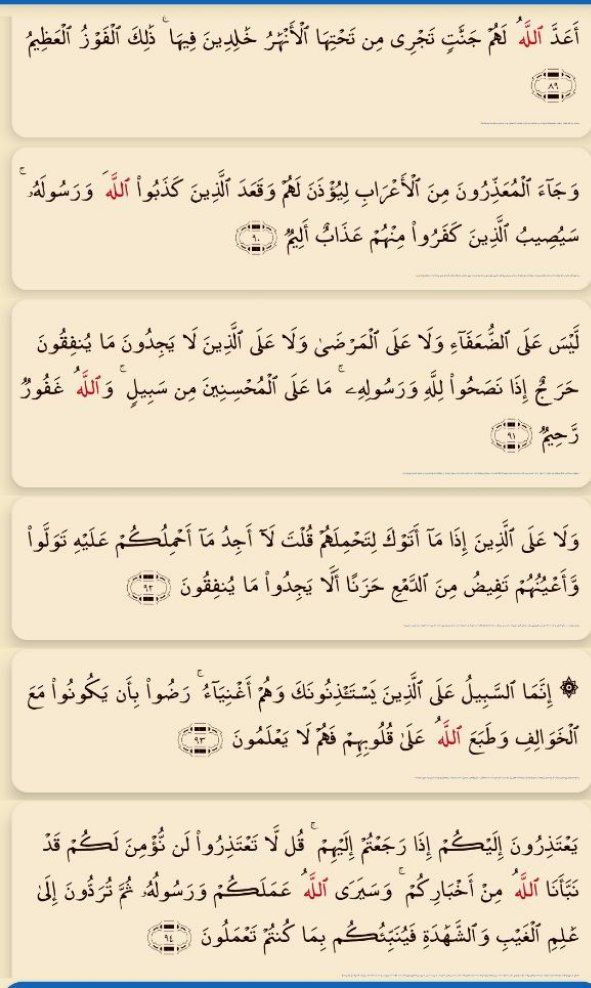 أَعَدَّ ٱللَّهُ لَهُمْ جَنَّٰتٍ تَجْرِى مِن تَحْتِهَا ٱلْأَنْهَٰرُ خَٰلِدِينَ فِيهَا ۚ ذَٰلِكَ ٱلْفَوْزُ ٱلْعَظِيمُ
٨٩
وَجَآءَ ٱلْمُعَذِّرُونَ مِنَ ٱلْأَعْرَابِ لِيُؤْذَنَ لَهُمْ وَقَعَدَ ٱلَّذِينَ كَذَبُوا۟ ٱللَّهَ وَرَسُولَهُۥ ۚ
سَيُصِيبُ ٱلَّذِينَ كَفَرُوا۟ مِنْهُمْ عَذَابٌ أَلِيمٌ ٩٠
لَّيْسَ عَلَى ٱلضُّعَفَآءِ وَلَا عَلَى ٱلْمَرْضَىٰ وَلَا عَلَى ٱلَّذِينَ لَا يَجِدُونَ مَا يُنفِقُونَ
حَرَجٌ إِذَا نَصَحُوا۟ لِلَّهِ وَرَسُولِهِۦ ۚ مَا عَلَى ٱلْمُحْسِنِينَ مِن سَبِيلٍ ۚ وَٱللَّهُ غَفُورٌ
رَّحِيمٌ ٩١
وَلَا عَلَى ٱلَّذِينَ إِذَا مَآ أَتَوْكَ لِتَحْمِلَهُمْ قُلْتَ لَآ أَجِدُ مَآ أَحْمِلُكُمْ عَلَيْهِ تَوَلَّوا۟
وَّأَعْيُنُهُمْ تَفِيضُ مِنَ ٱلدَّمْعِ حَزَنًا أَلَّا يَجِدُوا۟ مَا يُنفِقُونَ ٩٢
۞ إِنَّمَا ٱلسَّبِيلُ عَلَى ٱلَّذِينَ يَسْتَـْٔذِنُونَكَ وَهُمْ أَغْنِيَآءُ ۚ رَضُوا۟ بِأَن يَكُونُوا۟ مَعَ
ٱلْخَوَالِفِ وَطَبَعَ ٱللَّهُ عَلَىٰ قُلُوبِهِمْ فَهُمْ لَا يَعْلَمُونَ ٩٣
يَعْتَذِرُونَ إِلَيْكُمْ إِذَا رَجَعْتُمْ إِلَيْهِمْ ۚ قُل لَّا تَعْتَذِرُوا۟ لَن نُّؤْمِنَ لَكُمْ قَدْ
نَبَّأَنَا ٱللَّهُ مِنْ أَخْبَارِكُمْ ۚ وَسَيَرَى ٱللَّهُ عَمَلَكُمْ وَرَسُولُهُۥ ثُمَّ تُرَدُّونَ إِلَىٰ
عَٰلِمِ ٱلْغَيْبِ وَٱلشَّهَٰدَةِ فَيُنَبِّئُكُم بِمَا كُنتُمْ تَعْمَلُونَ ٩٤